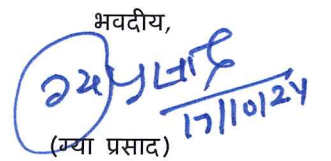 भवदीय,
17/10/24
(ग्या प्रसाद)